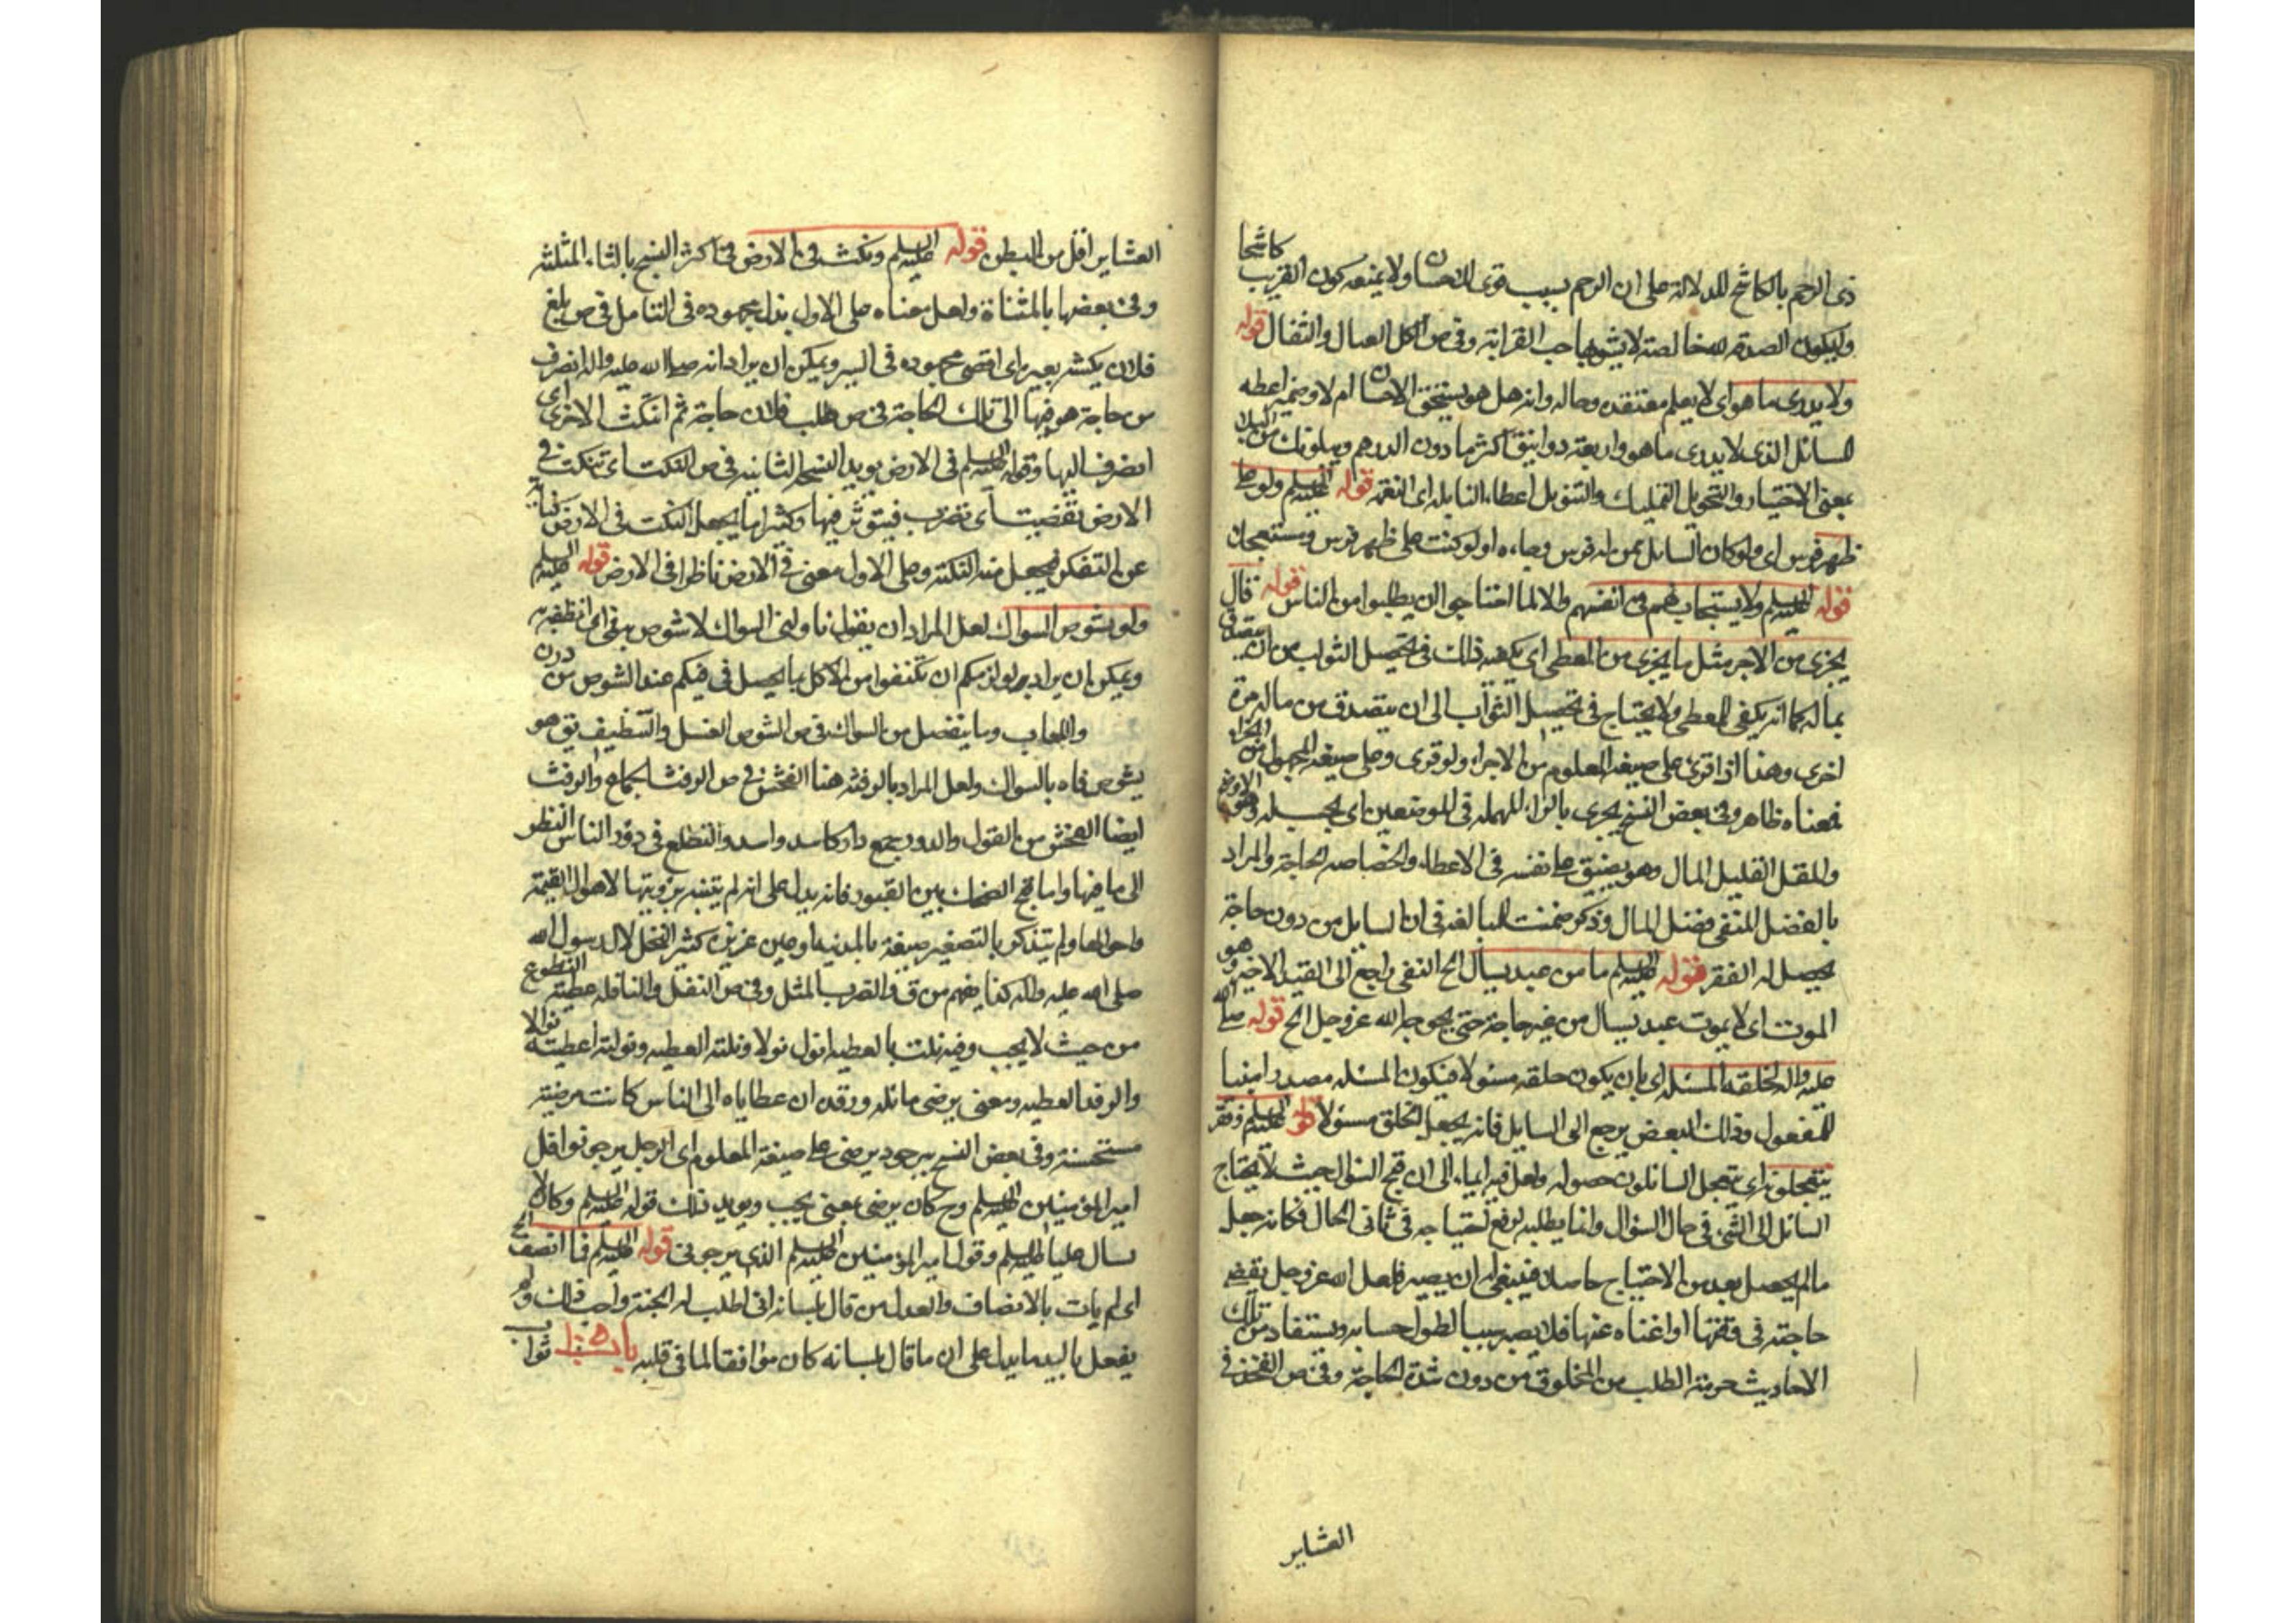 ذى الرحم بالكاشح للدلالة على ان الرحم سبب قوى للاحسان ولا يمنعه كون القريب كاشحا
وليكون الصدقة لله خالصة لا يشوبها حب القرابة وفى ص الكل العيال والثقال قوله
ولا يدرى ما هو اى لا يعلم معتقده وحاله وانه هل هو يستحق الاحسان ام لا وضمير اعطه
للسائل الذى لا يدرى ما هو واربعة دوانيق اكثرها دون الدرهم ويبلونك من
بمعنى الاختبار والتخويل التمليك والتنويل اعطاء النايلة اى النعمة قوله عليه السلم ولو على
ظهر فرس اى ولو كان السايل ممن له فرس وجاءه او لو كنت على ظهر فرس ويستعجلك
قوله عليه السلم ولا يستجاب لهم فى انفسهم والا لما احتاجوا الى ان يطلبوا من الناس قوله قال
يجزى من الاجر مثل ما يجزى من المعطى اى يكفيه ذلك فى تحصيل الثواب من ان يتصدق
بماله كما انه يكفى المعطى ولا يحتاج فى تحصيل الثواب الى ان يتصدق من ماله مرة
اخرى وهذا اذا قرئ على صيغة المعلوم من الاجزاء ولو قرى وعلى صيغة المجهول من الجزاء
فمعناه ظاهر وفى بعض النسخ يجرى بالراء المهملة فى الموضعين اى يحصل له
والمقل القليل المال وهو يضيق على نفسه فى الاعطاء والخصاصة الحاجة والمراد
بالفضل المنفى فضل المال وذكر ضمنت للمبالغة فى ان السايل من دون حاجة
يحصل له الفقر قوله عليه السلم ما من عبد يسال الخ النفى راجع الى القيد الاخير وهو
الموت اى لا يموت عبد يسال من غير حاجة حتى يحوجه الله عز وجل الخ قوله صلى الله
عليه واله لخلقه المسئلة اى بان يكون خلقه مسئولا فيكون المسئلة مصدرا مبنيا
للمفعول وذلك البعض يرجع الى السايل فانه يجعل الخلق مسئولا قوله عليه السلم وفقر
يتعجلونه اى يتعجل السائلون حصوله ولعل فيه ايماء الى ان قبح السؤال حيث لا يحتاج
السائل الى الشئ فى حال السؤال وانما يطلبه لرفع احتياجه فى ثانى الحال فكانه جعل
ما لم يحصل بعد من الاحتياج حاصلا فينبغى له ان يصير فلعل الله عز وجل يقضى
حاجته فى وقتها او اغناه عنها فلا يصير سببا لطول حسابه ويستفاد من تلك
الاحاديث حرمة الطلب من المخلوق من دون شدة الحاجة وفى ص الفخذ فى
العشاير
العشاير اقل من البطن قوله عليه السلم ونكث فى الارض فى اكثر النسخ بالثاء المثلثة
وفى بعضها بالمثناة ولعل معناه على الاول بذل مجهوده فى التامل فى ص بلغ
فلان نكيثة بعيره اى اقصى مجهوده فى السير ويمكن ان يراد انه صلى الله عليه واله انصرف
من حاجة هو فيها الى تلك الحاجة فى ص طلب فلان حاجة ثم انتكث الاخرى اى
انصرف اليها وقوله عليه السلم فى الارض يويد النسخة الثانية فى ص النكت اى تنكت فى
الارض بقضيب اى تضرب فيتوثر فيها وكثيرا ما يجعل النكت فى الارض كناية
عن التفكر فيحصل منه النكتة وعلى الاول معنى فى الارض ناظرا فى الارض قوله عليه السلم
ولو بشوص السواك لعل المراد ان يقول ناولنى السواك لاشوص به فى
ويمكن ان يراد به لوازمكم ان تكتفوا من الاكل بما يحصل فى فيكم عند الشوص من درن
واللعاب وما ينفصل من السواك فى ص الشوص الغسل والتنظيف يق هو
يشوص فاه بالسواك ولعل المراد بالرفث هنا الفحش فى ص الرفث الجماع والرفث
ايضا الفحش من القول والدور جمع دار كاسد واسد والتطلع فى دور الناس النظر
الى ما فيها واما قبح الضحك بين القبور فانه يدل على انه لم يتنبه برؤيتها لاهوال القيمة
واحوالها ولم يتذكر بالتصغير ضيعة بالمدينة او عين غزيرة كثير النخل لال رسول الله
صلى الله عليه واله كذا يفهم من ق فالضرب المثل وفى ص النفل والنافلة عطية التطوع
من حيث لا يجب وفيه نلت بالعطية انول نولا ونلته العطية ونولته اعطيته نوالا
والرفد العطية ومعنى يرضى ماثله ورفده ان عطاياه الى الناس كانت مرضية
مستحسنة وفى بعض النسخ يرجو ويرضى على صيغة المعلوم اى الرجل يرجو نوافل
امير المؤمنين عليه السلم وح كان يرضى بمعنى يحب ويويد ذلك قوله عليه السلم وكان لا
يسال عليا عليه السلم وقول امير المؤمنين عليه السلم الذى يرجونى قوله عليه السلم فما انصف الخ
اى لم يات بالانصاف والعدل من قال بلسانه انى اطلب له الجنة واحب ذلك ولم
يفعل باليد ما يدل على ان ما قال بلسانه كان موافقا لما فى قلبه باب ثواب